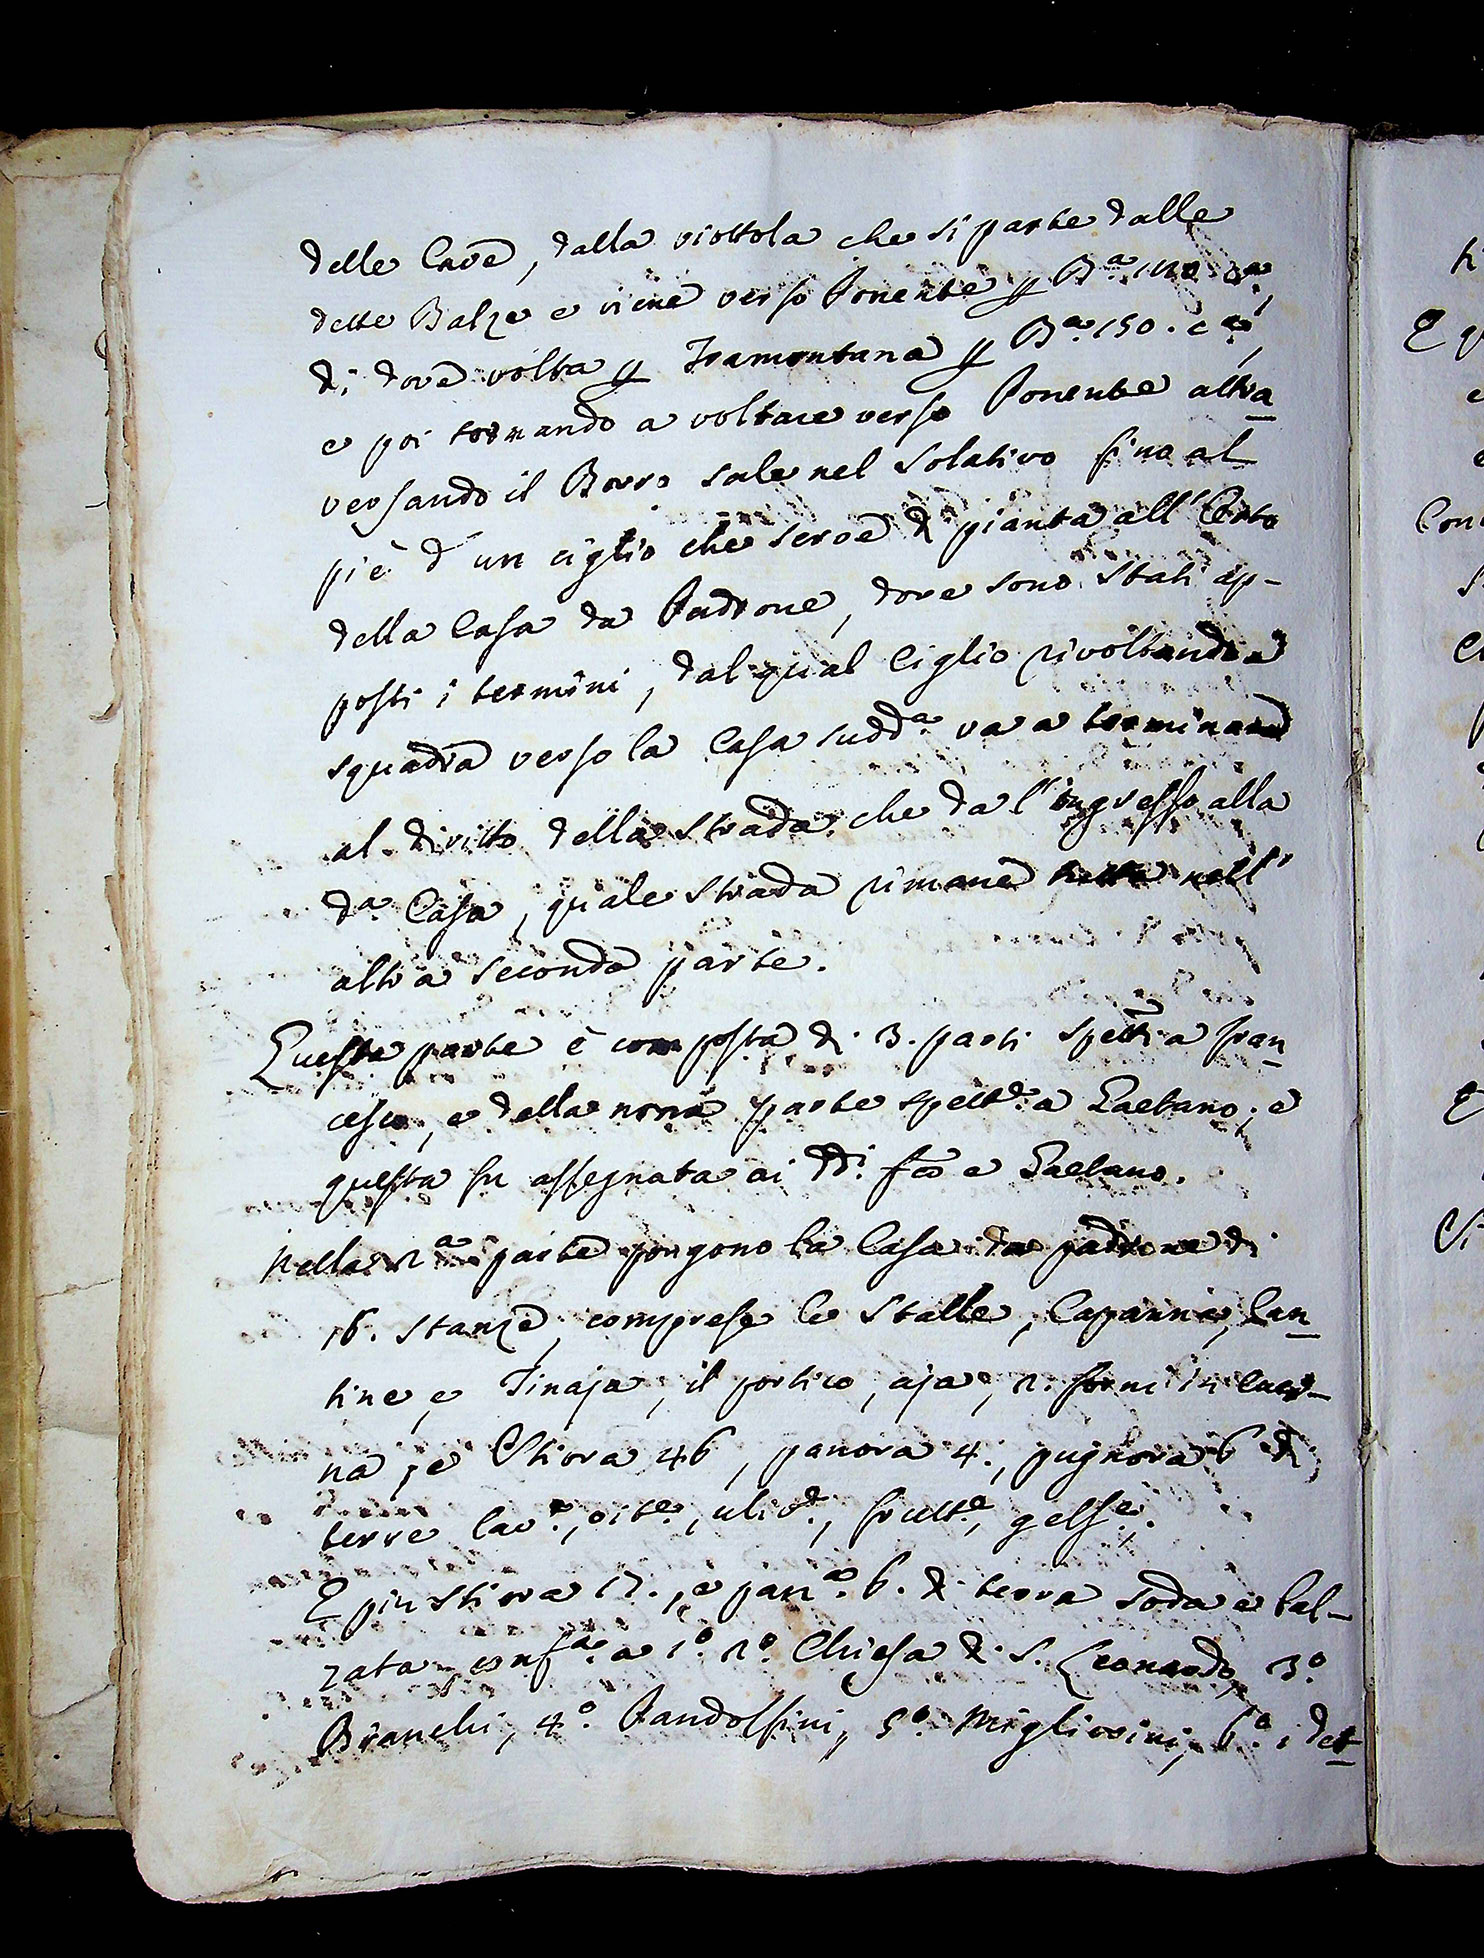 delle Cave, dalla viottola che si parte dalle
dette Balze e viene verso Ponente p Ba
di dove volta p Tramontana p Ba 150. ca,
e poi tornando a voltare verso Ponente attra
versando il Borro sale nel Solativo fino al
piè d un ciglio che serve di pianta all' Orto
della Casa da Padrone, dove sono stati ap-
posti i termini, dal qual Ciglio rivoltando a
squadra verso la Casa sudda va a terminare
al diritto della Strada, che da l'ingresso alla
da Casa, quale Strada rimane nell'
altra seconda parte.
Questa parte è composta di 3. parti spetti a Fran
cesco, e della nona parte spette a Gaetano; e
questa fu assegnata ai ddi. Fco e Gaetano.
Nella 2a parte pongono la Casa da padrone di
16. stanze, comprese le Stalle, Capanna, Can
tine, e Tinaja, il portico, aja, 2. forni in
na, e Stiora 46, panora 4., pugnora 6 di
terre lave., vite., ulive., frutte., gelse.
E piu Stiora 17., e pane. 6. di terra soda e bal-
zata, confa. a 1o. 2o. Chiesa di S. Leonardo, 3o
Bianchi, 4o. Pandolfini, 5o. Migliorini, 6o. i det